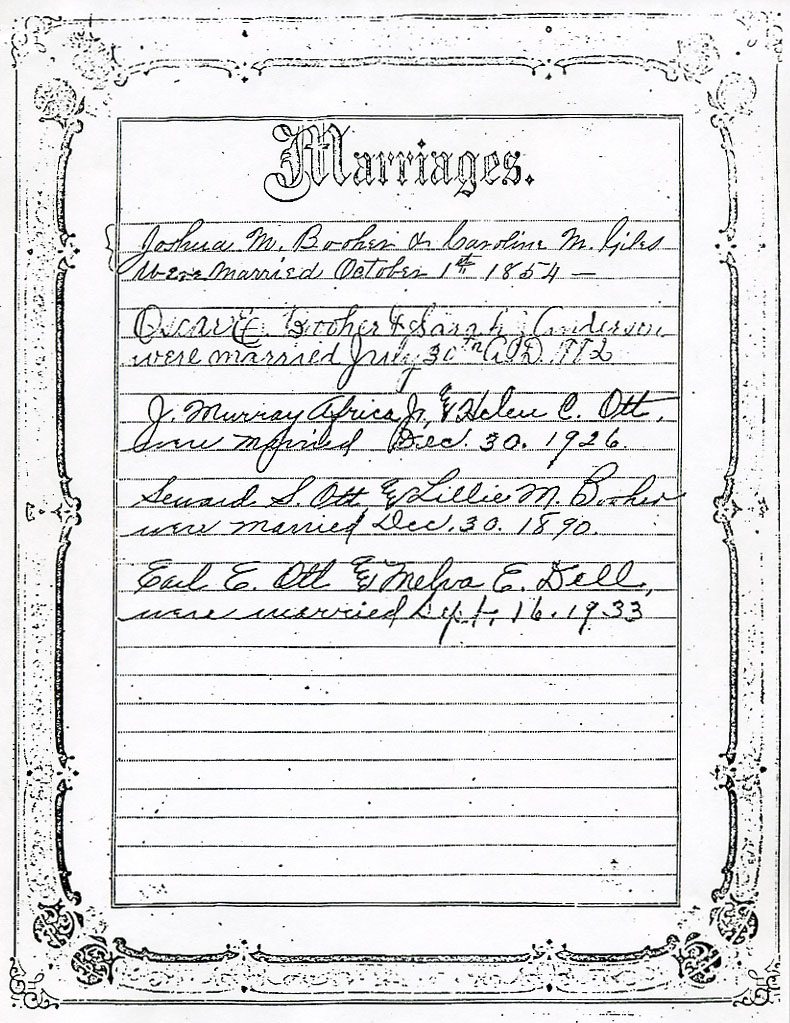 Marriages.
Joshua M. Booher & Caroline M. Giles
Were Married October 1st 1854 —
Oscar E. Booher & Sarah Anderson
were married July 30th A.D.
J. Murray Africa Jr, & Helen C. Ott,
were married Dec. 30. 1926.
Seward S. Ott & Lillie M. Booher
were married Dec. 30. 1890.
Earl E. Ott & Melva E. Dell,
were married Sept. 16. 1933